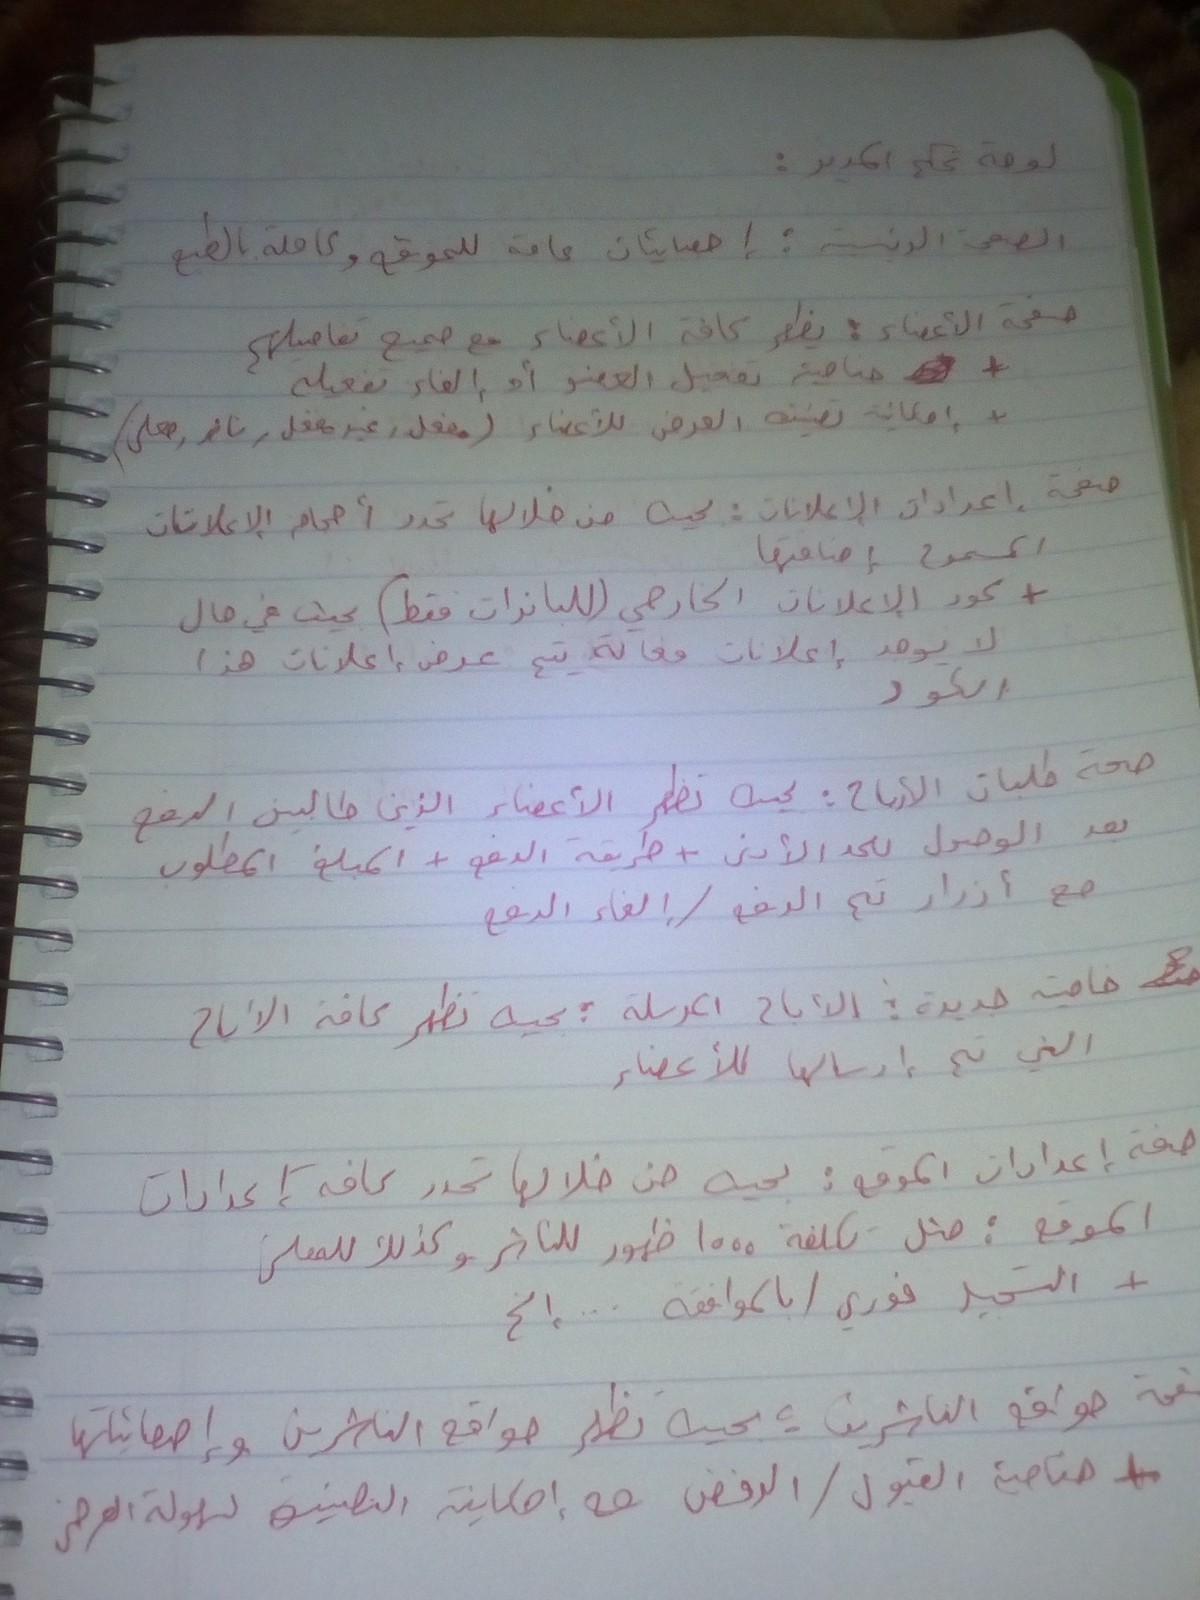 لوحة تحكم المدير :
الصفحة الرئيسية : إحصائيات عامة للموقع وكاملة بالطبع
صفحة الأعضاء : يظهر كافة الأعضاء مع جميع تفاصيلهم
+ خاصية تفعيل العضو أو إلغاء تفعيله
+ إمكانية تصنيف العرض للأعضاء (مفعل, غير مفعل, ناشر, معلن)
صفحة إعدادات الإعلانات : بحيث من خلالها تحدد أحجام الإعلانات
المسموح إضافتها
+ كود الإعلانات الخارجي (للبانرات فقط) بحيث في حال
لا يوجد إعلانات فعالة يتم عرض إعلانات هذا
الكود
صفحة طلبات الأرباح : بحيث تظهر الأعضاء الذين طالبين الدفع
بعد الوصول للحد الأدنى + طريقة الدفع + المبلغ المطلوب
مع أزرار تم الدفع / إلغاء الدفع
خاصية جديدة : الأرباح المرسلة : بحيث تظهر كافة الأرباح
التي تم إرسالها للأعضاء
صفحة إعدادات الموقع : بحيث من خلالها تحدد كافة إعدادات
الموقع : مثل تكلفة ١٠٠٠ ظهور للناشر وكذلك للمعلن
+ التسجيل فوري / بالموافقة ... إلخ
صفحة مواقع الناشرين : بحيث تظهر مواقع الناشرين وإحصائياتها
+ خاصية القبول / الرفض مع إمكانية التصنيف لسهولة العرض